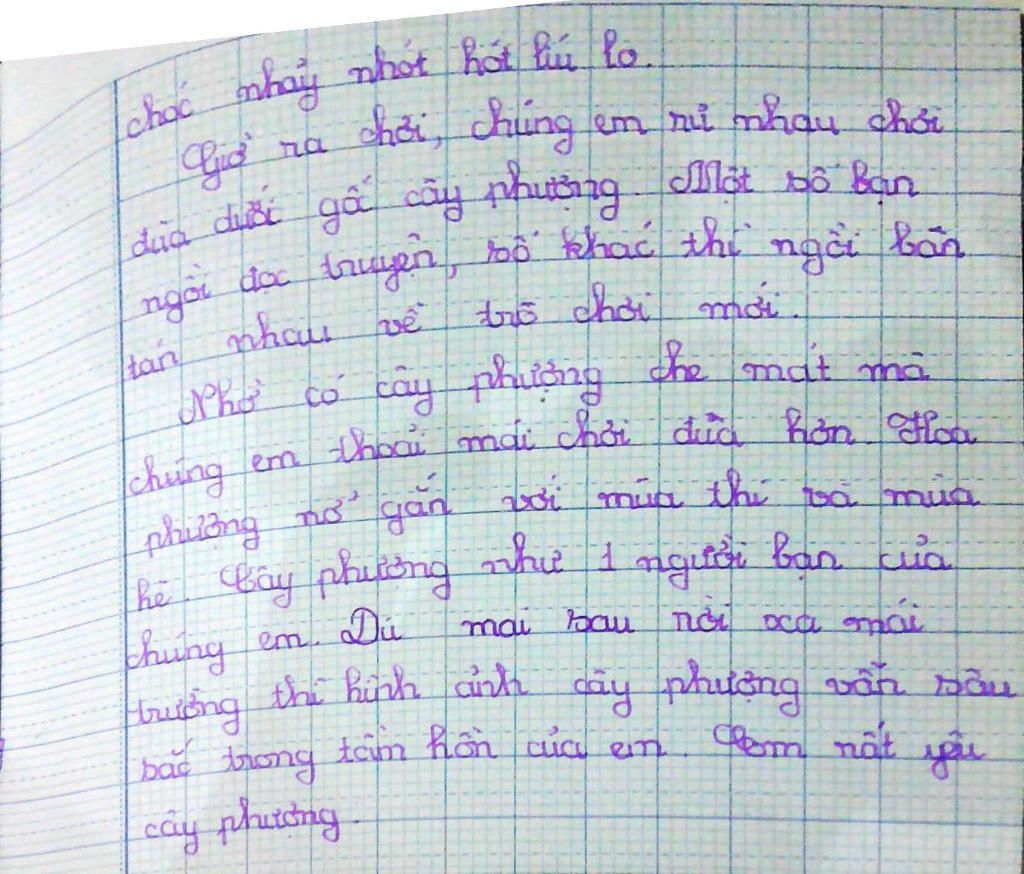 choc nhảy nhót hót líu lo.
Giờ ra chơi, chúng em rủ nhau chơi
đùa dưới gốc cây phượng. Một số bạn
ngồi đọc truyện, số khác thì ngồi bàn
tán nhau về trò chơi mới.
Nhờ có cây phượng che mát mà
chúng em thoải mái chơi đùa hơn. Hoa
phượng nở gắn với mùa thi và mùa
hè. Cây phượng như 1 người bạn của
chúng em. Dù mai sau rời xa mái
trường thì hình ảnh cây phượng vẫn sâu
sắc trong tâm hồn của em. Em rất yêu
cây phượng.